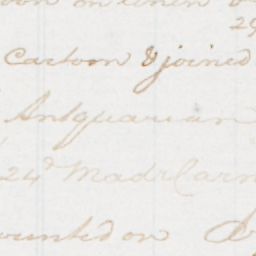 on linen
25
Cartoon & joined
Antquarian
24d Made Carn
ounted on